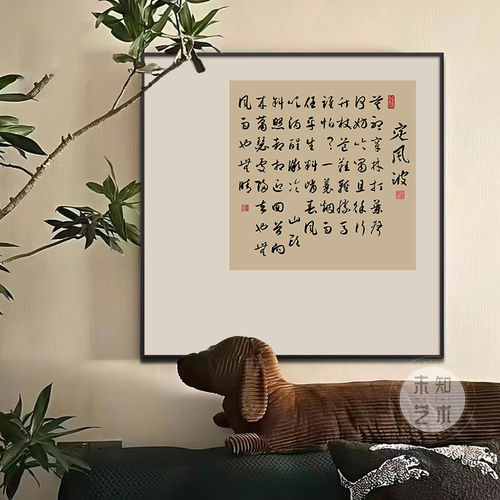 定风波
莫听穿林打葉聲
何妨吟嘯且徐行
竹杖芒鞋輕勝馬
谁怕？一蓑烟雨
任平生料峭春风
吹酒醒微冷 山頭
斜照却相迎回首向
来萧瑟處歸去也無
风雨也無晴
未知
艺术